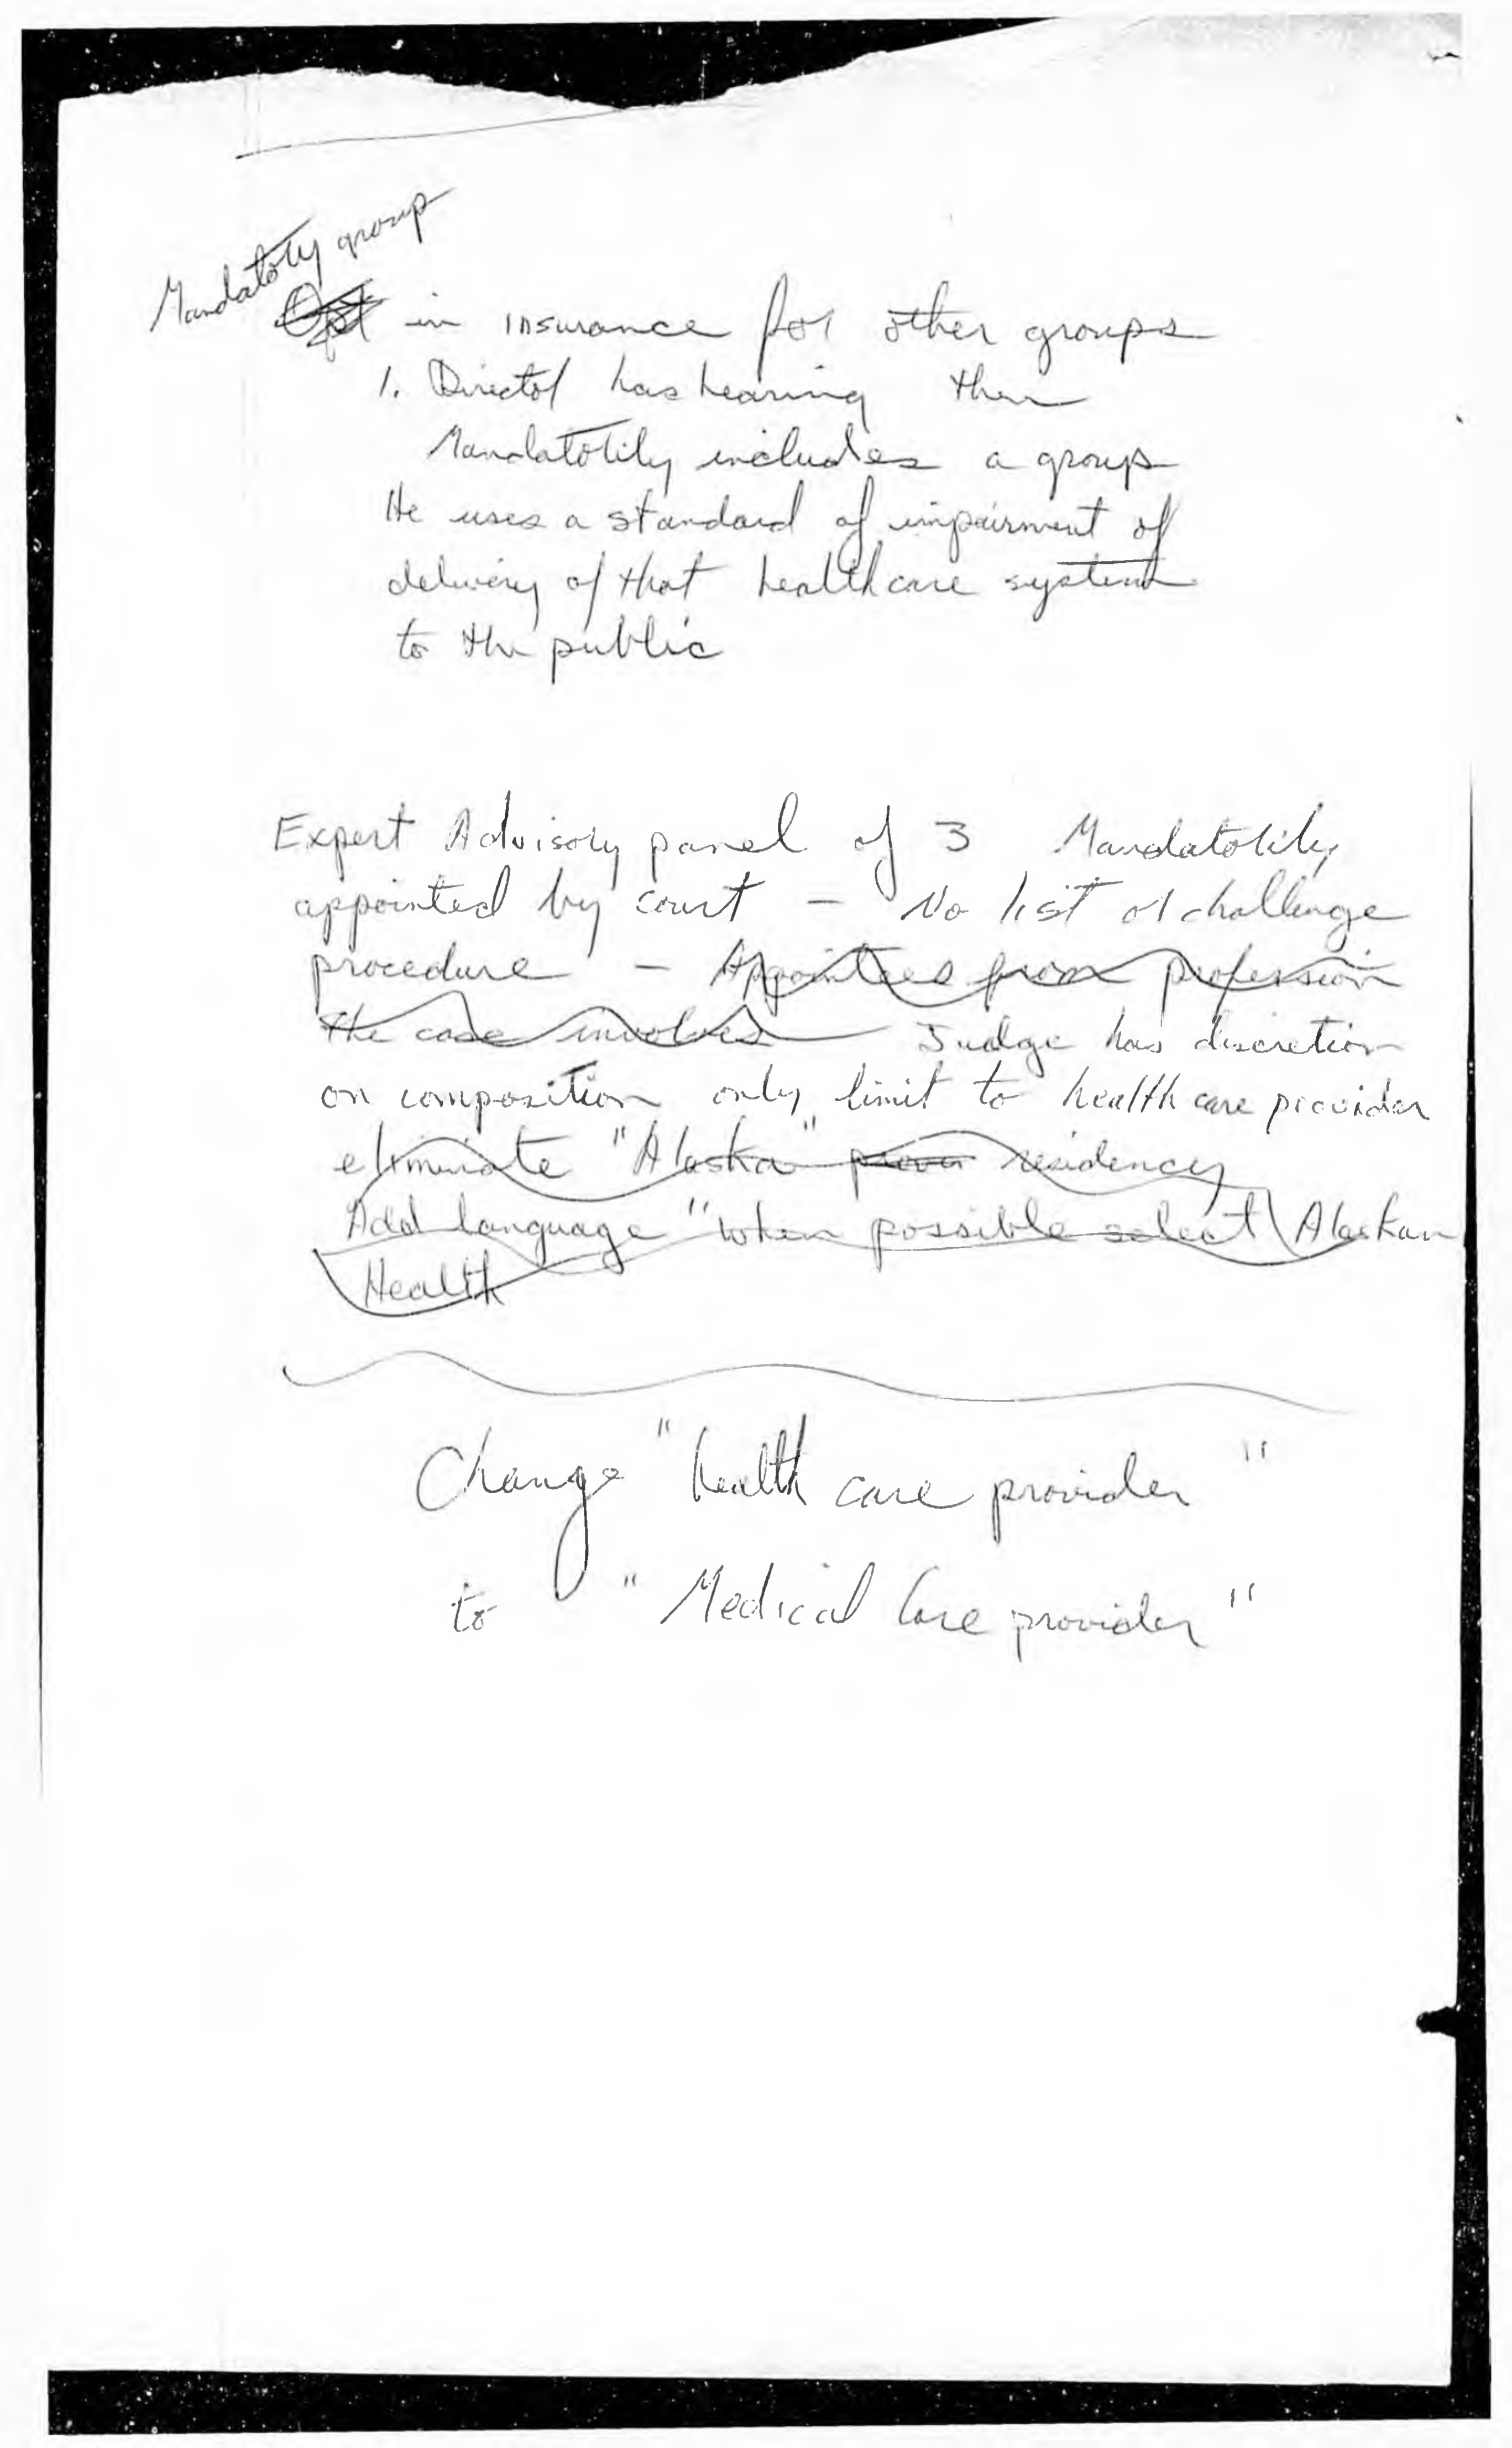 Mandatory group
Opt in insurance for other groups
1. Director has hearing then
Mandatorily includes a group
He uses a standard of impairment of
delivery of that healthcare system
to the public
Expert Advisory panel of 3 Mandatorily
appointed by court - No list or challenge
procedure - Appointees from profession
the case involves Judge has discretion
on composition only limit to health care provider
eliminate "Alaska" residency
Add language "when possible select Alaskan
Health
Change "health care provider"
to "Medical Care provider"